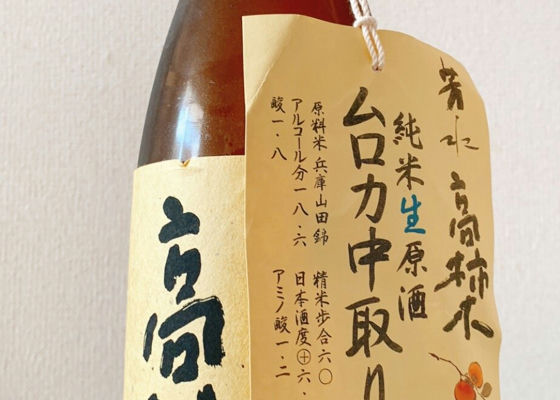 芳水 高柿木
純米生原酒
ムロカ中取り
原料米 兵庫山田錦
アルコール分一八・六
酸一・八
精米歩合六〇
日本酒度⊕六・
アミノ酸一・二
高